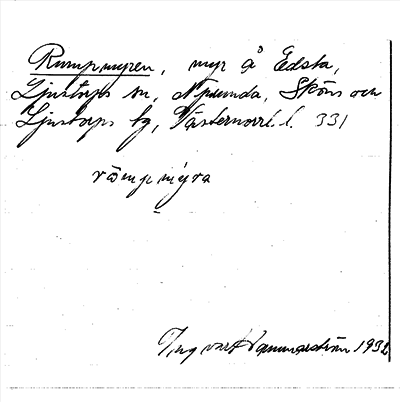 Rumpmyren, myr å Edsta,
Ljustorps sn, N purnda, Sköns och
Ljustorps tg, Västernorrl. l. 331
römpmýra
Ingvar Hammarström 1932